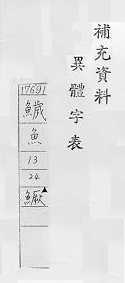 補充資料
異體字表
17691
鱥
魚
13
24
鱖▲